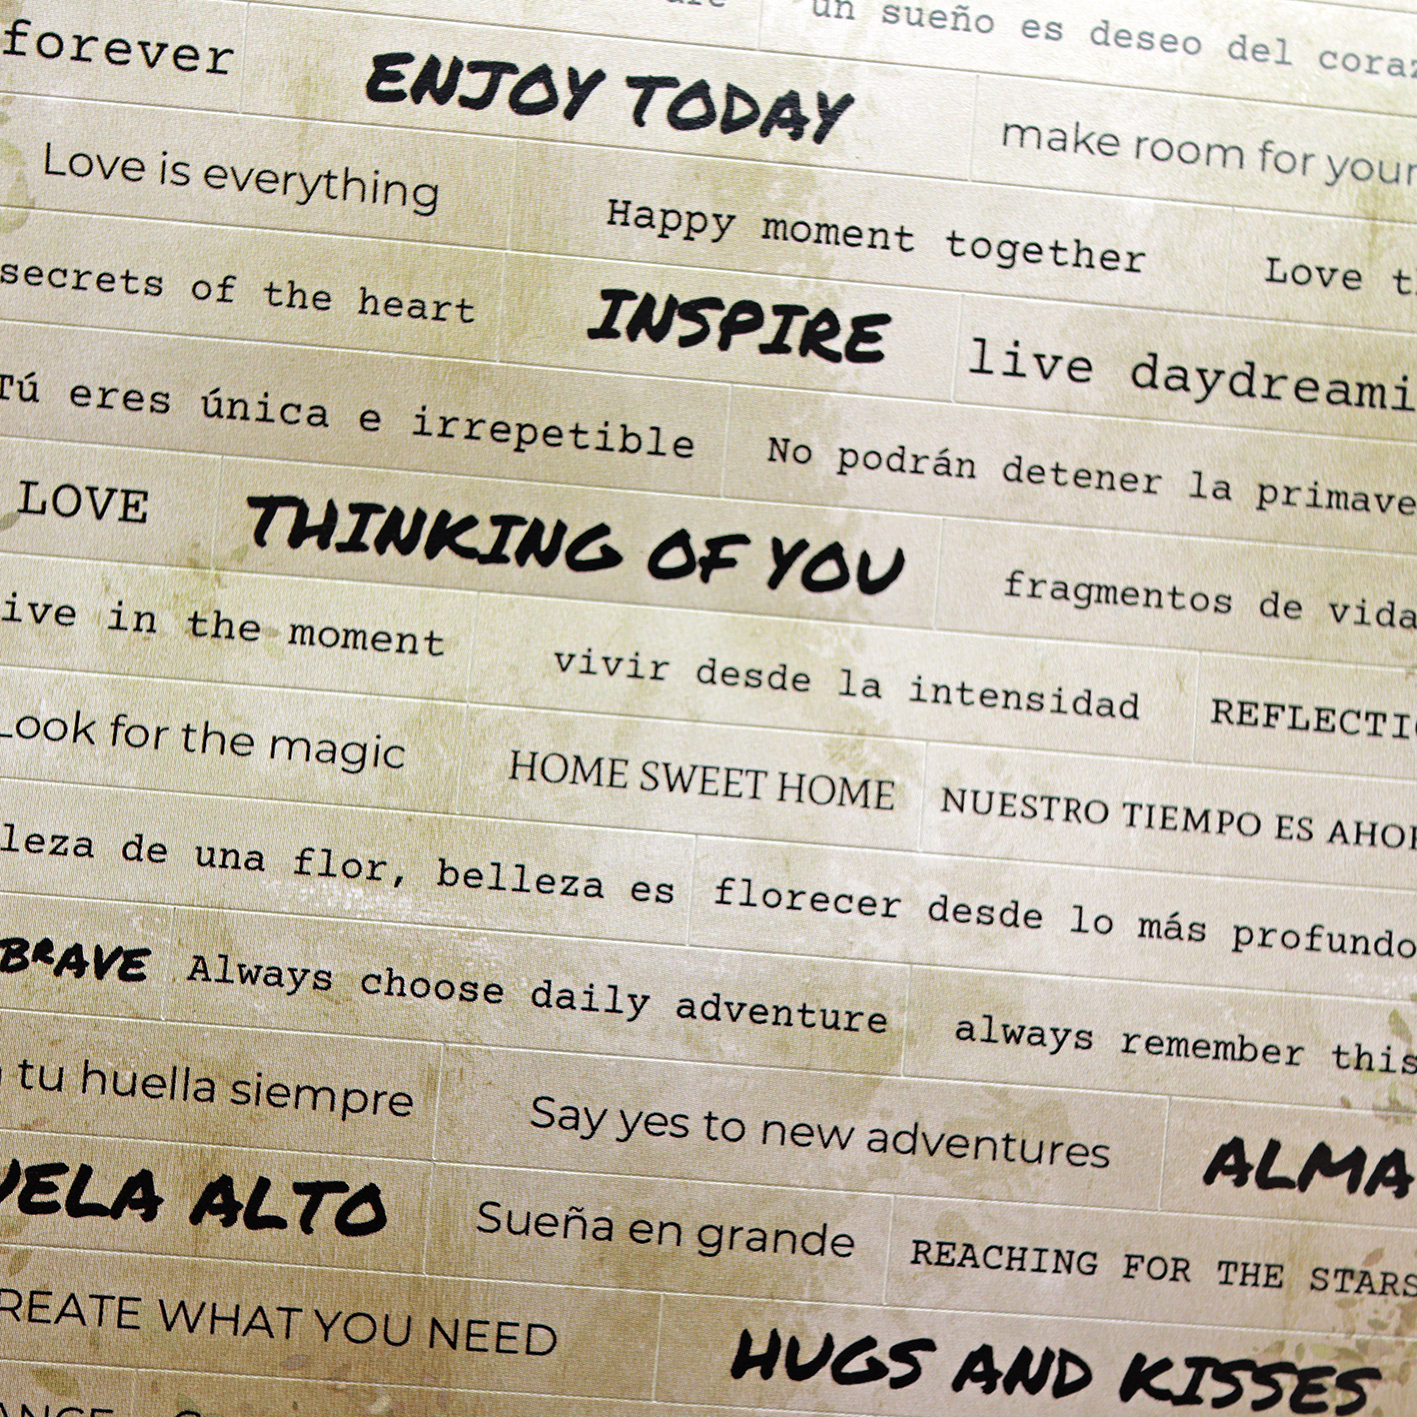 un sueño es deseo del
forever ENJOY TODAY make room for your
Love is everything Happy moment together Love
secrets of the heart INSPIRE live
Tú eres única e irrepetible No podrán detener la
LOVE THINKING OF YOU fragmentos de vida
in the moment vivir desde la intensidad
Look for the magic HOME SWEET HOME NUESTRO TIEMPO ES
de una flor, belleza es florecer desde lo más profundo
BRAVE Always choose daily adventure always remember this
tu huella siempre Say yes to new adventures ALMA
ALTO Sueña en grande REACHING FOR THE STARS
WHAT YOU NEED HUGS AND KISSES